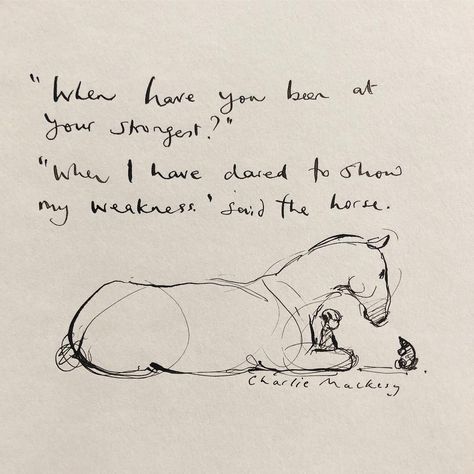 "When have you been at
your strongest?"
"When I have dared to show
my weakness.' said the horse.
Charlie Mackesy